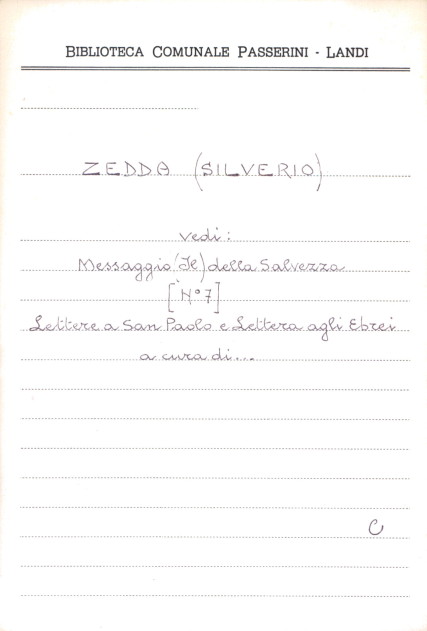 BIBLIOTECA COMUNALE PASSERINI - LANDI
ZEDDA (SILVERIO)
vedi:
Messaggio (Il) della Salvezza
[N° 7]
Lettere a San Paolo e Lettera agli Ebrei
a cura di...
C